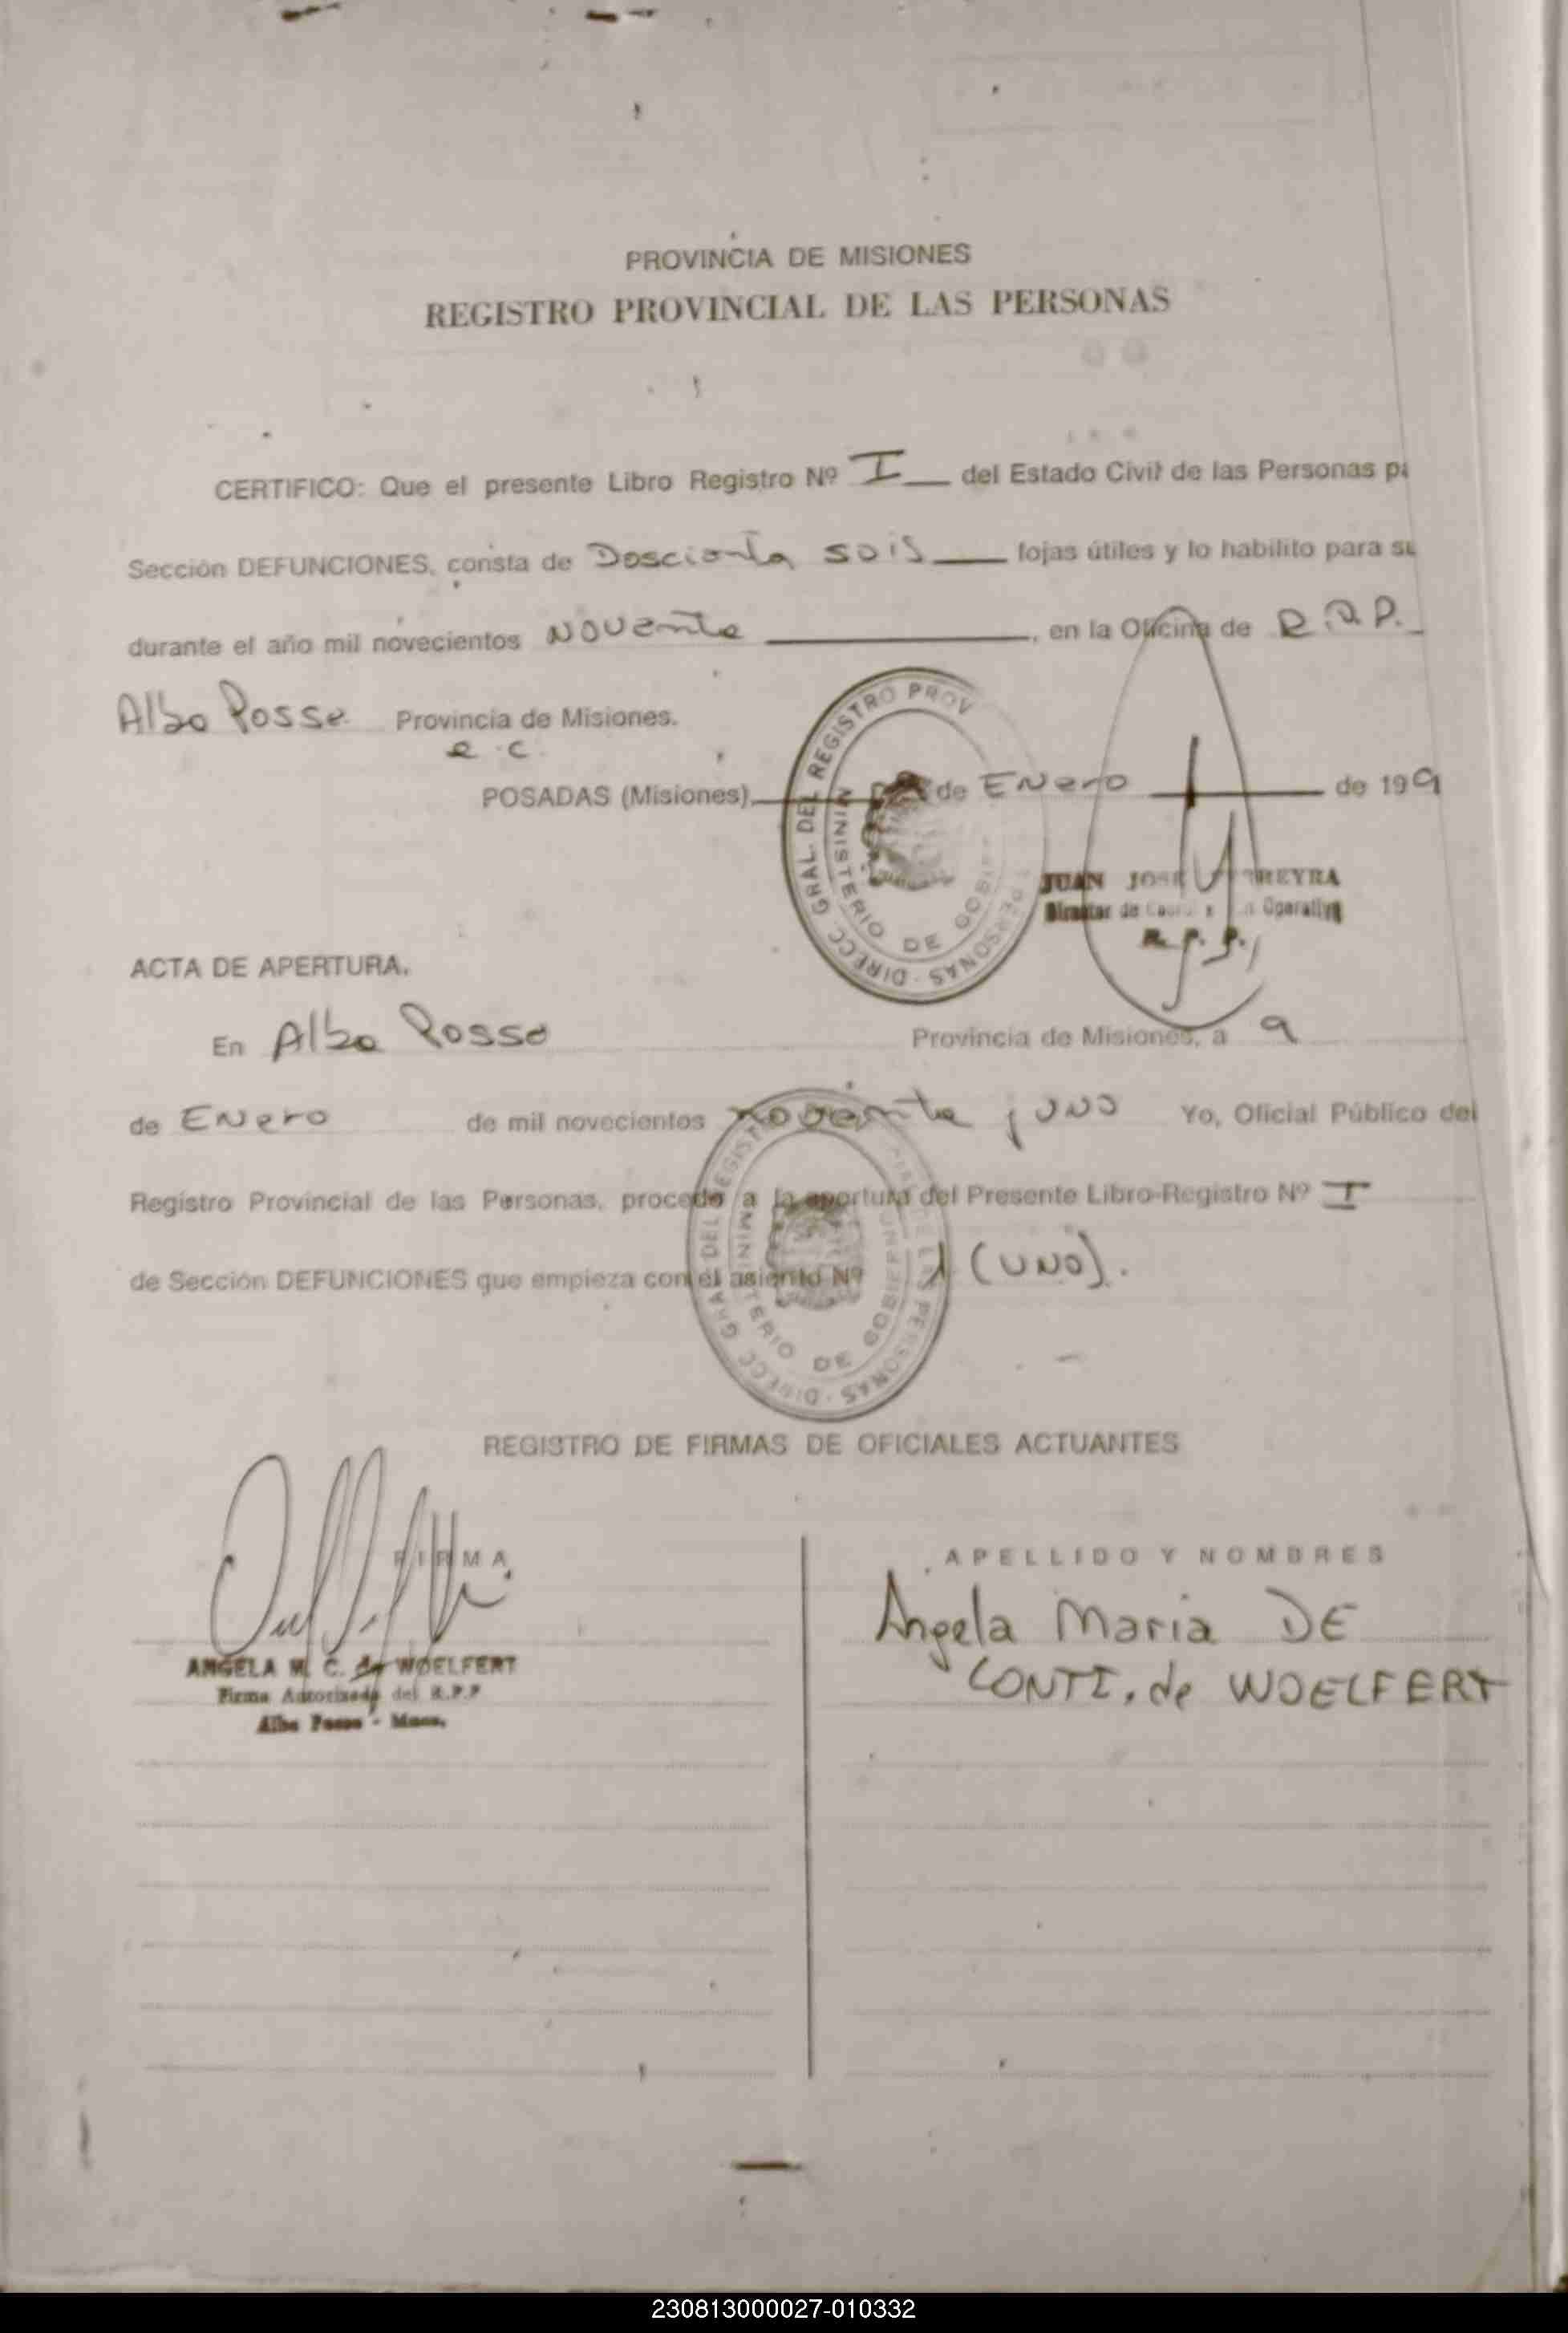 PROVINCIA DE MISIONES
REGISTRO PROVINCIAL DE LAS PERSONAS
CERTIFICO: Que el presente Libro Registro Nº I del Estado Civil de las Personas
Sección DEFUNCIONES, consta de Doscienta seis fojas útiles y lo habilito para su
durante el año mil novecientos Noventa, en la Oficina de R.P.P.
Alba Posse Provincia de Misiones.
e.c.
POSADAS (Misiones), de Enero de 199
DIRECC. GRAL. DEL REGISTRO PROV PERSONAS
MINISTERIO DE GOBIE
JUAN JOSE REYRA
Director de Operativa
R.P.P.
ACTA DE APERTURA.
En Alba Posse Provincia de Misiones, a 9
de Enero de mil novecientos noventa y uno Yo, Oficial Público del
Registro Provincial de las Personas, procedo a la apertura del Presente Libro-Registro Nº I
de Sección DEFUNCIONES que empieza con el asiento Nº 1 (UNO).
REGISTRO DE FIRMAS DE OFICIALES ACTUANTES
FIRMA
APELLIDO Y NOMBRES
Angela Maria DE
CONTI, de WOELFERT
ANGELA M. C. de WOELFERT
Firma Autorizada del R.P.P
Alba Posse - Mnes.
230813000027-010332